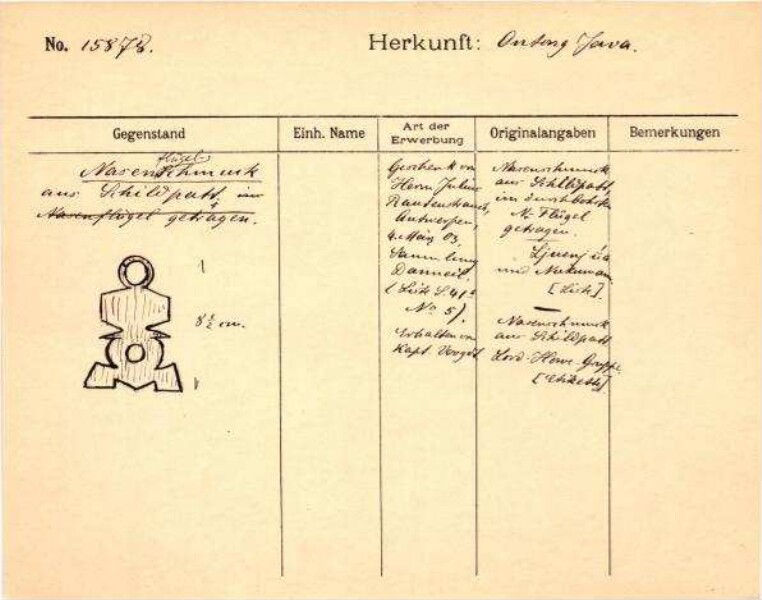 No. 15878.
Herkunft: Ontong Java.
Gegenstand
Einh. Name
Art der
Erwerbung
Originalangaben
Bemerkungen
flügel-
Nasenschmuck
aus Schildpatt, im
Nasenflügel getragen.
8 1/2 cm.
Geschenk von
Herrn Julius
Rautenstrauch,
Antwerpen,
4. März 03,
Sammlung
Danneil.
(Liste S. 41
No 5).
Erhalten von
Kapt. Voogdt
Nasenschmuck
aus Schildpatt,
im durchbohrten
N-Flügel
getragen.
und
[Liste].
Nasenschmuck
aus Schildpatt
Lord-Howe-Gruppe
[Etikette]